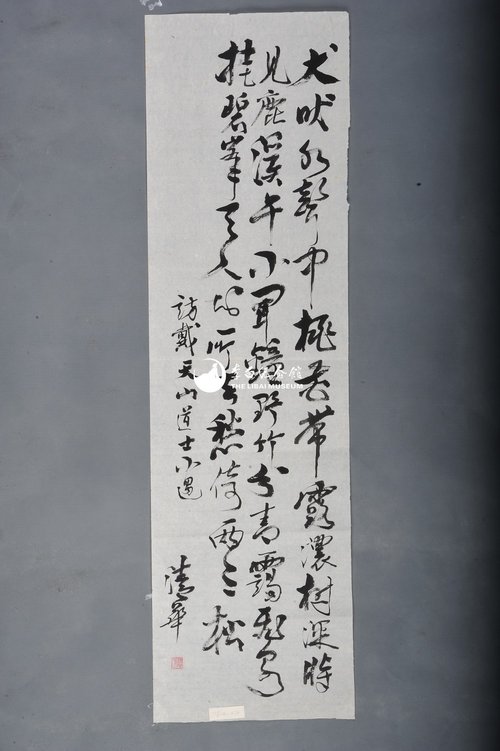 犬吠水聲中桃花帶露濃樹深時
見鹿溪午不聞鐘野竹分青靄飛泉
挂碧峯無人知所去愁倚兩三松
訪戴天山道士不遇
清華
李白纪念馆
THE LIBAI MUSEUM